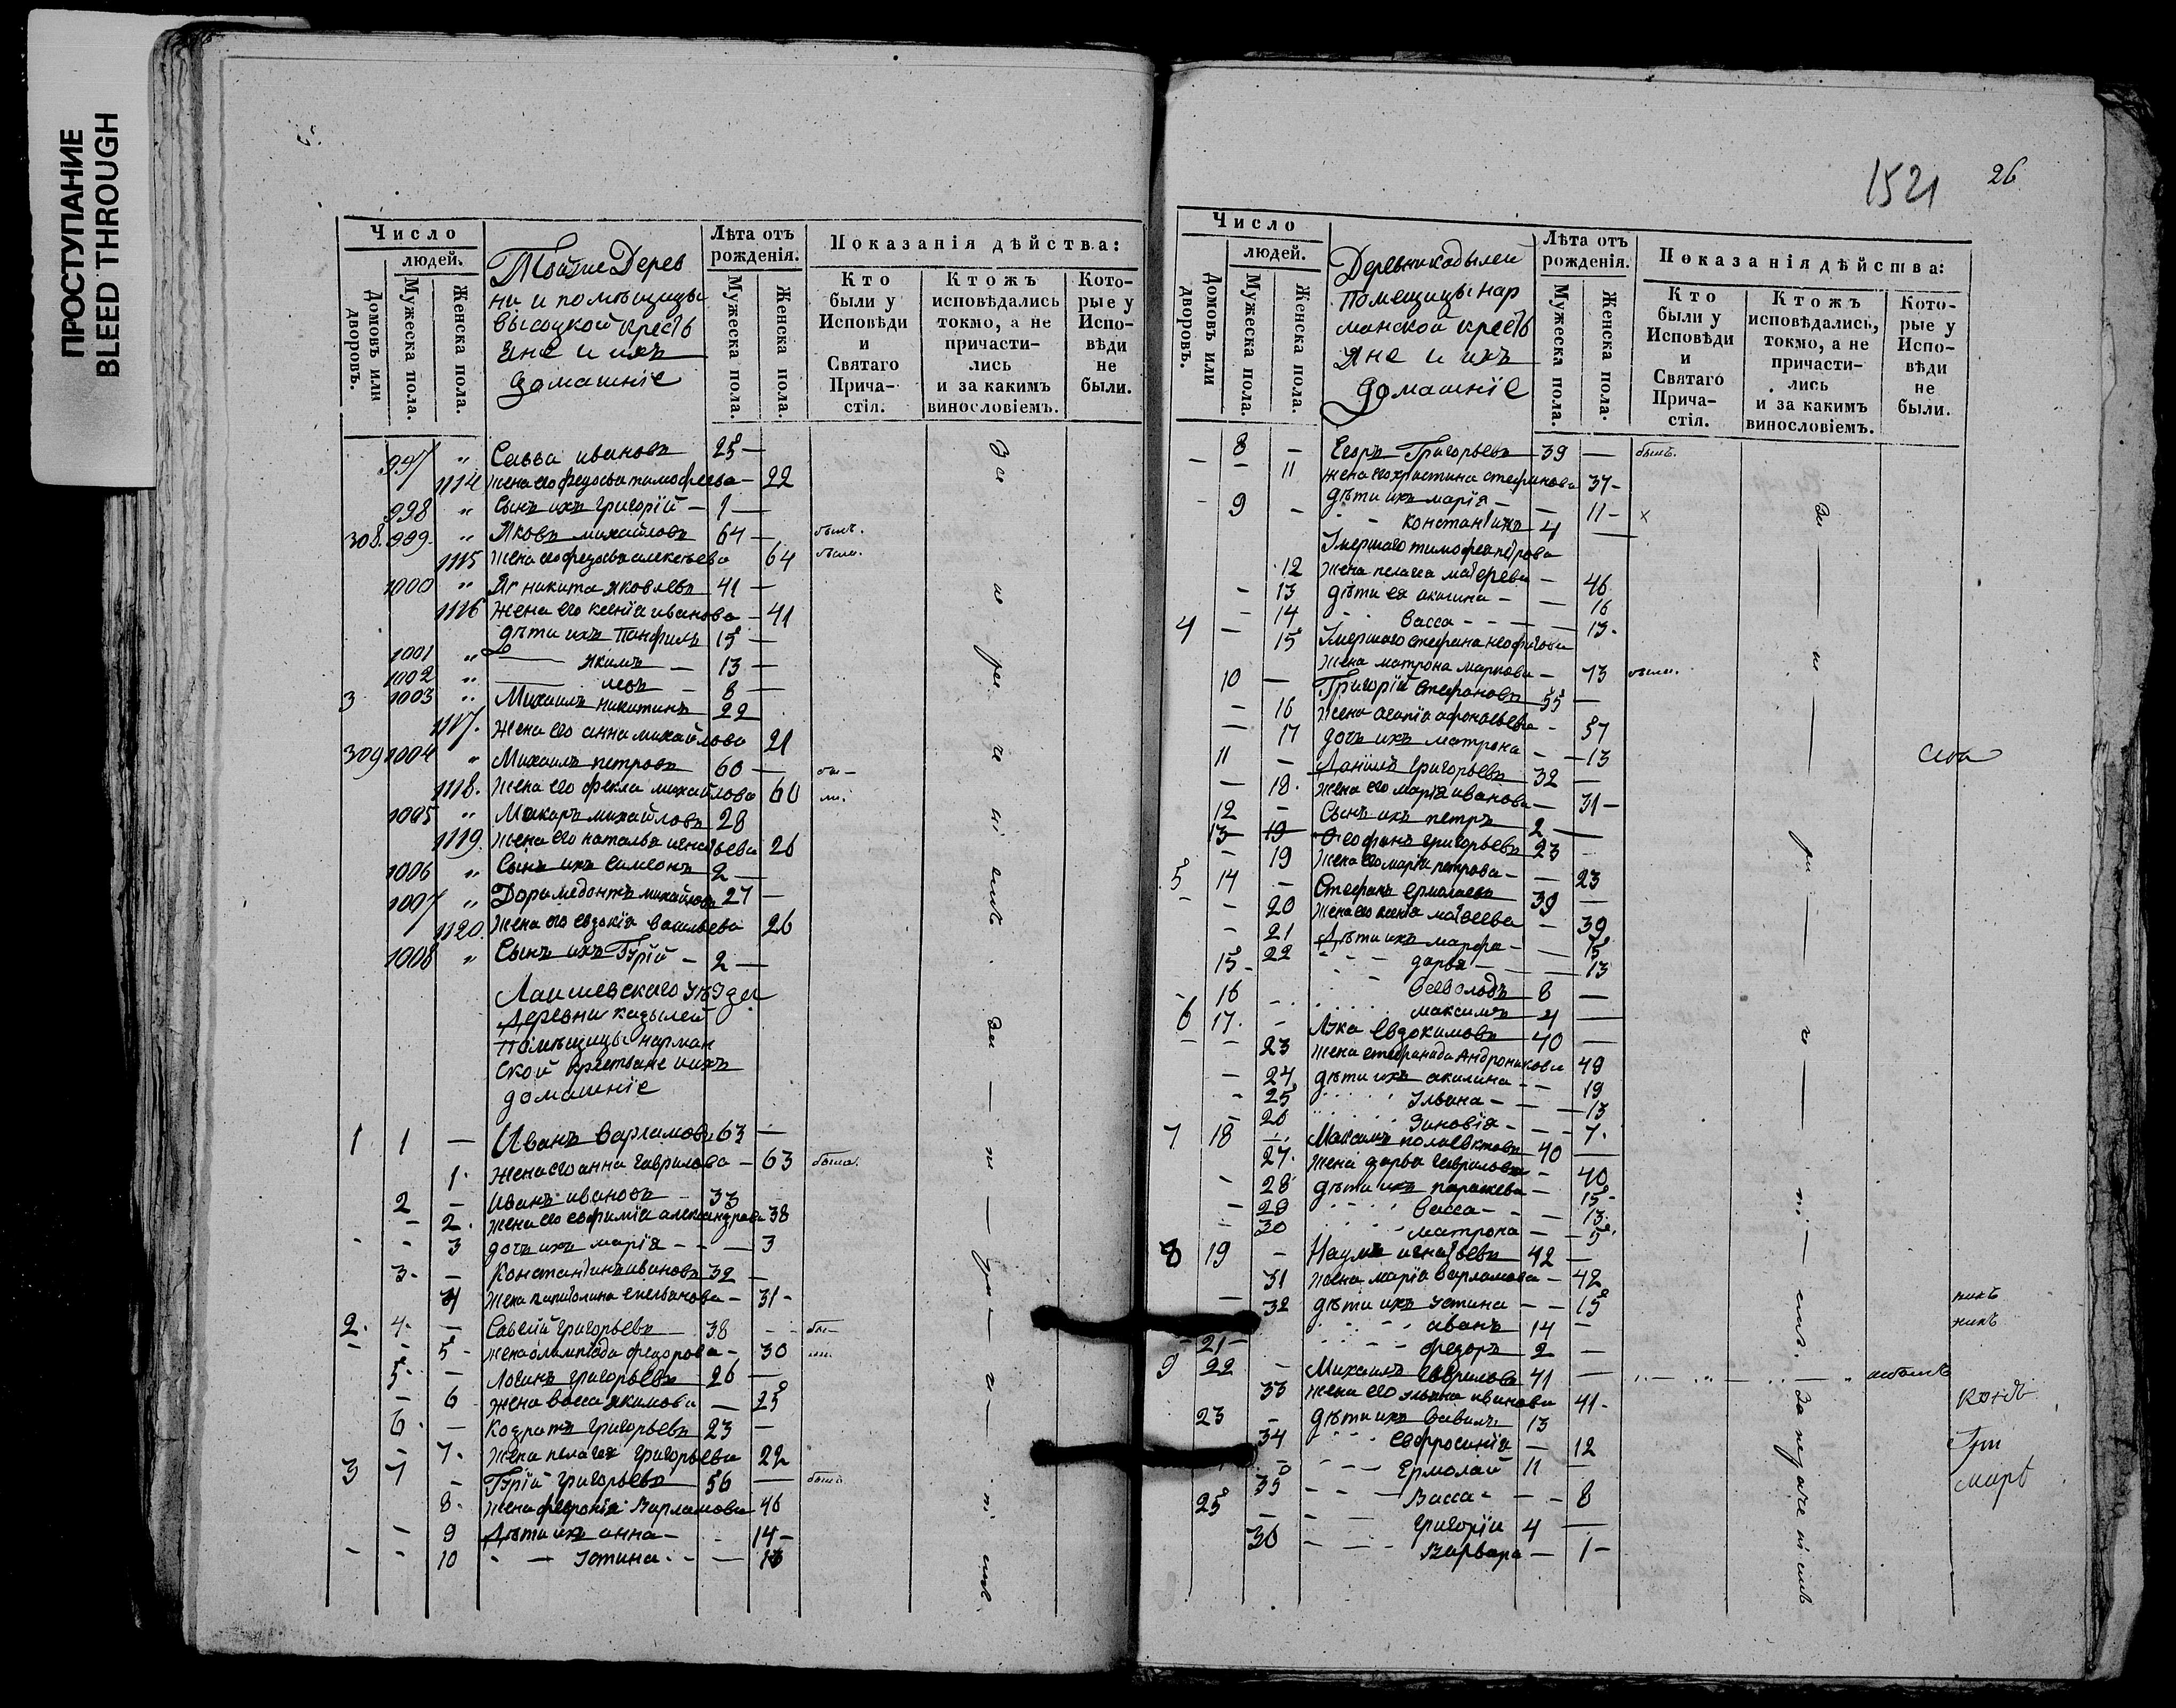 ПРОСТУПАНИЕ
BLEED THROUGH
Число
людей.
Домовъ или дворовъ.
Мужеска пола.
Женска пола.
Тойже Дерев
ни и помѣщицы
высоцкой кресть
яне и ихъ
домашніе
Лѣта отъ рожденія.
Мужеска пола.
Женска пола.
Показанія дѣйства:
Кто были у Исповѣди и Святаго Прича-стія.
Ктожъ исповѣдались токмо, а не причасти-лись и за какимъ винословіемъ.
Кото-рые у Испо-вѣди не были.
997 " Савва ивановъ 25 —
1114 жена его федосья тимофеева — 22
998 " Сынъ ихъ григорій — 1 —
308. 999. " Яковъ михайловъ 64 — былъ.
1115 жена его федосья алексѣева 64 была.
1000 " никита яковлевъ 41 —
1116 жена его ксенія иванова — 41
дѣти ихъ Панфилъ 15 —
1001 " якимъ — 13 —
1002 " левъ — 8 —
3 1003 " Михаилъ никитинъ 22
1117. жена его анна михайлова 21
309 1004 " Михаилъ петровъ 60 — бы-
1118. жена его фекла михайлова 60 ли.
1005 " Макаръ михайловъ 28
1119. жена его наталья игнатьева 26
1006 " Сынъ ихъ симеонъ 2 —
1007 " Доримедонтъ михайловъ 27 —
1120. жена его евдокія васильева 26
1008 " Сынъ ихъ Гурій — 2 —
Лаишевскаго уѣзда
деревни кадылей
помѣщицы нарман
ской крестьяне и ихъ
домашніе
1 1 — Иванъ варламовъ 63 —
1. жена его анна гаврилова — 63 была.
2 — Иванъ ивановъ — 33
— 2. жена его евфимія александрова 38
- - 3 дочь ихъ марія - - — 3
3. — Константинъ ивановъ 32 —
4 жена капитолина емельянова — 31 -
2. 4. — Савелій григорьевъ 38 - - бы-
- - 5 - жена олимпіада федорова — 30 ли.
5. — Логинъ григорьевъ — 26 —
— 6 жена васса якимова — 25
6. — Кодратъ григорьевъ 23 —
— 7. жена пелагея григорьева 22
3 7 — Гурій григорьевъ 56 — были
8. жена февронія варламова 46
— 9 дѣти ихъ анна — - 14 -
- - 10 - — устина - - — 13
1521
26
Число
людей.
Домовъ или дворовъ.
Мужеска пола.
Женска пола.
Деревни кадылей
помещицы нар
манской кресть
яне и ихъ
домашніе
Лѣта отъ рожденія.
Мужеска пола.
Женска пола.
Показанія дѣйства:
Кто были у Исповѣди и Святаго Прича-стія.
Ктожъ исповѣдались, токмо, а не причасти-лись и за какимъ винословіемъ.
Кото-рые у Испо-вѣди не были.
8 — Егоръ Григорьевъ 39 — былъ.
- - 11 жена его христина стефанова 37 -
- 9 - дѣти ихъ марія — — 11 - х
- - константинъ 4 —
Умершаго тимофея петрова
12 жена пелагея матвеева — 46
- 13 дѣти ея акилина - — 16
- 14 васса - - - 13 -
4 — 15 Умершаго стефана
жена матрона маркова — 73 была.
10 — Григорій стефановъ 55 —
- 16 жена агапія афонасьева - 57
— 17 дочь ихъ матрона — — 13
11 — Данилъ григорьевъ 32 —
— 18. жена его марія иванова — 31 —
12 — Сынъ ихъ петръ 2 —
13 19 Феофанъ григорьевъ 23
- 19 жена его марія петрова - — 23
5 14 - Стефанъ ермолаевъ 39 —
- - 20 жена его ксенія матвеева — 39
- 21 дѣти ихъ марфа - — 15
22 - - дарья - — 13
15 - всеволодъ 8 —
- 16 - максимъ 4 —
6 17. — Лука евдокимовъ 40 —
- - 23 жена стефанида Андроникова 49
— 24 дѣти ихъ акилина - — 19
- 25 ульяна - — 13
- 26 зиновія - - - 7.
7 18 Максимъ полиевктовъ 40 —
27. жена дарья гаврилова - 40
- 28 дѣти ихъ параскева — 15 -
- 29 васса - - 13.
- 30 матрона — - 5.
8 19 - Наумъ игнатьевъ 42 —
31 жена марія варламова — 42
— 32 дѣти ихъ устина - - 15
иванъ 14 —
- 21 — федоръ 2 —
9 22 - Михаилъ гавриловъ 41 —
33 жена его ульяна иванова 41 -
23 - дѣти ихъ вавилъ 13
34 евфросинія — 12
- - Ермолай 11 —
35 - - — Васса - - 8
25 - - григорій 4 —
36 - - Варвара — 1 -